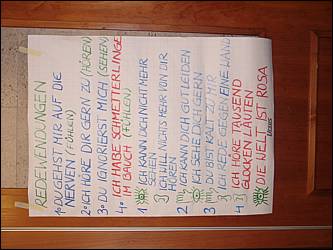 REDEWENDUNGEN
1. DU GEHST MIR AUF DIE
NERVEN (FÜHLEN)
2. ICH HÖRE DIR GERN ZU (HÖREN)
3. DU IGNORIERST MICH (SEHEN)
4. ICH HABE SCHMETTERLINGE
IM BAUCH (FÜHLEN)
1 ICH KANN DICH NICHT MEHR
SEHEN
ICH WILL NICHTS MEHR VON DIR
HÖREN
2 ICH KANN DICH GUT LEIDEN
ICH SEHE DICH GERN
3 DU BIST KALT ZU MIR
3 ICH REDE GEGEN EINE WAND
4 ICH HÖRE TAUSEND
GLOCKEN LÄUTEN
DIE WELT IST ROSA